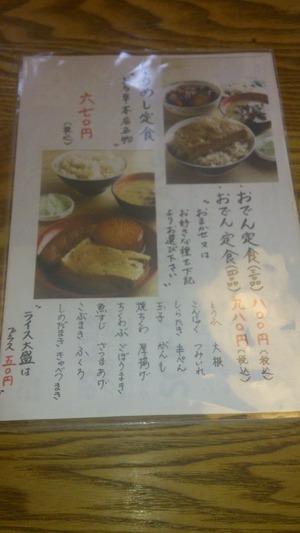 おでん定食(三品)八〇〇円(税込)
おでん定食(四品)九八〇円(税込)
おまかせ又は
お好きな種を下記
よりお選び下さい
とうふ 大根
こんにゃく つみいれ
しらたき 半ぺん
玉子 がんも
焼ちくわ 厚揚げ
ちくわぶ ごぼうまき
魚すじ さつまあげ
こぶまき ふくろ
しのだまき きゃべつまき
めし定食
六七〇円
(税込)
ライス大盛は
プラス五〇円